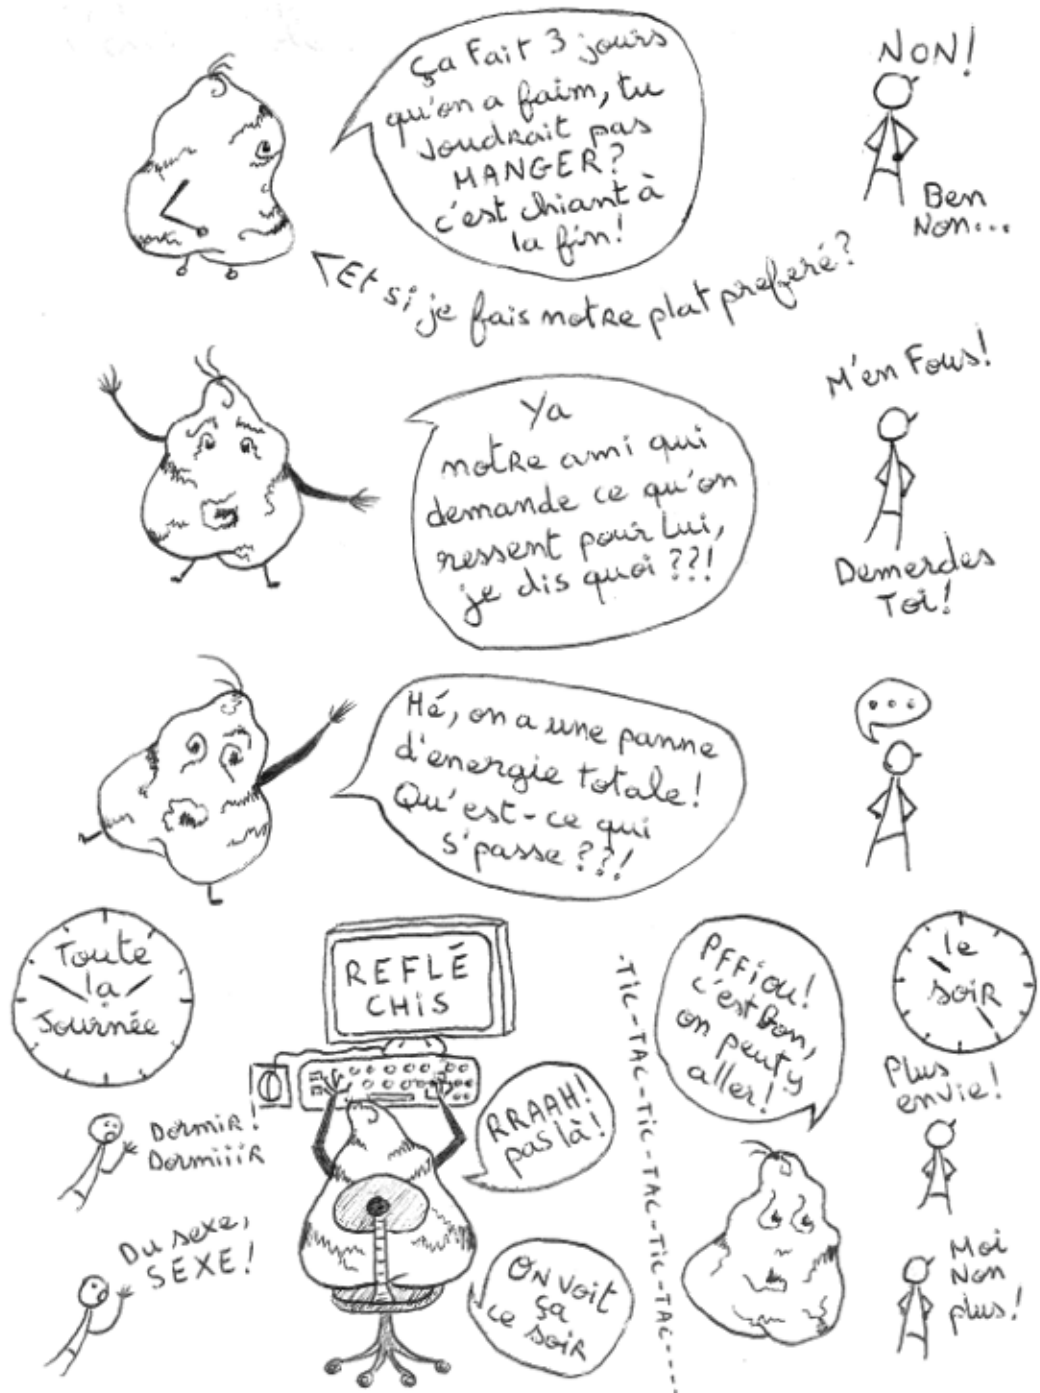 Ça Fait 3 jours
qu'on a faim, tu
voudrait pas
MANGER?
c'est chiant à
la fin!
NON!
Ben
Non...
Et si je fais notre plat preferé?
M'en Fous!
Ya
notre ami qui
demande ce qu'on
ressent pour Lui,
je dis quoi ??!
Demerdes
Toi!
Hé, on a une panne
d'energie totale!
Qu'est-ce qui
s'passe ??!
...
Toute
la
Journée
REFLÉ
CHiS
Dormir!
Dormiiir
RRAAH!
pas là!
Du sexe,
SEXE!
ON VOIT
ça
ce soir
-TIC-TAC-TIC-TAC-TIC-TAC----
PFFiou!
c'est bon,
on peut y
aller!
le
soir
Plus
envie!
Moi
Non
plus!